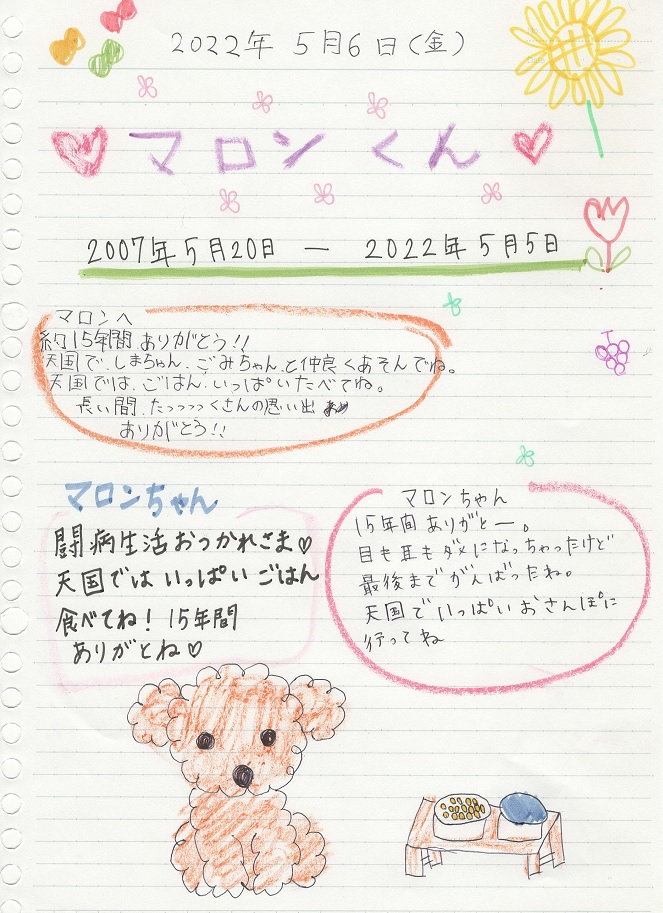 2022年 5月6日(金)
マロンくん
2007年5月20日 ー 2022年5月5日
マロンへ
約15年間、ありがとう!!
天国で、しまちゃん、ごみちゃん、と仲良くあそんでね。
天国では、ごはん、いっぱいたべてね。
長い間、たっっっっくさんの思い出
ありがとう!!
マロンちゃん
闘病生活おつかれさま♡
天国では いっぱい ごはん
食べてね! 15年間
ありがとね♡
マロンちゃん
15年間ありがとー。
目も耳もダメになっちゃったけど
最後までがんばったね。
天国でいっぱいおさんぽに
行ってね